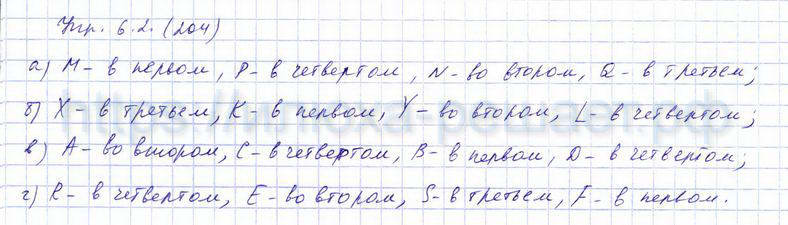 Упр. 6.2. (204)
а) М – в первом, Р – в четвертом, N – во втором, Q – в третьем;
б) Х – в третьем, К – в первом, Y – во втором, L – в четвертом;
в) А – во втором, С – в четвертом, В – в первом, D – в четвертом;
г) R – в четвертом, Е – во втором, S – в третьем, F – в первом.